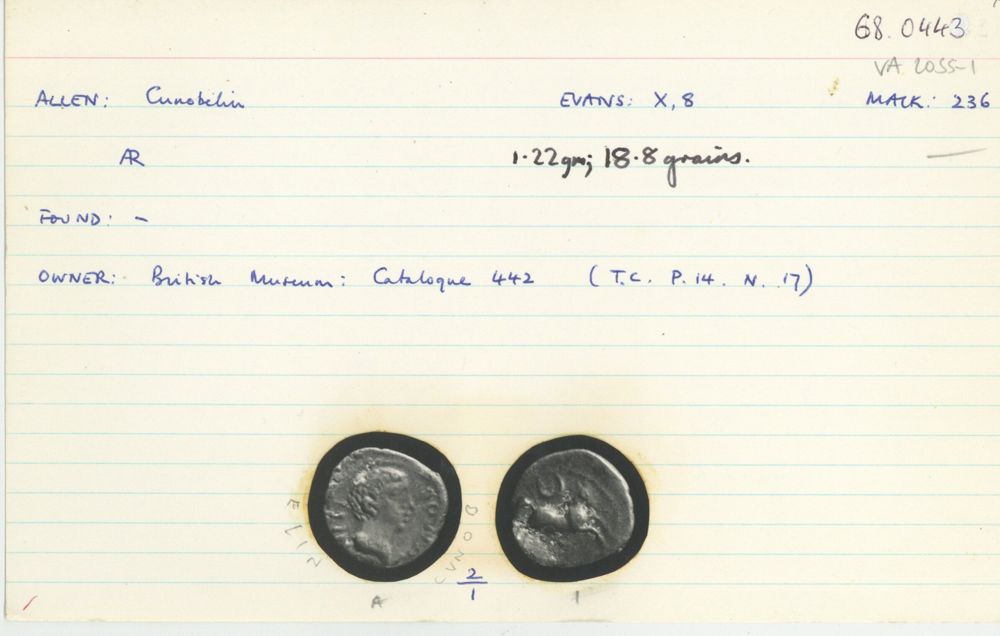 68.0443
VA 2055-1
ALLEN: Cunobelin EVANS: X, 8 MACK: 236
AR 1.22gm; 18.8 grains. —
FOUND: -
OWNER: British Museum: Catalogue 442 (T.C. P. 14. N. 17)
CUNOB
2/1
A 1